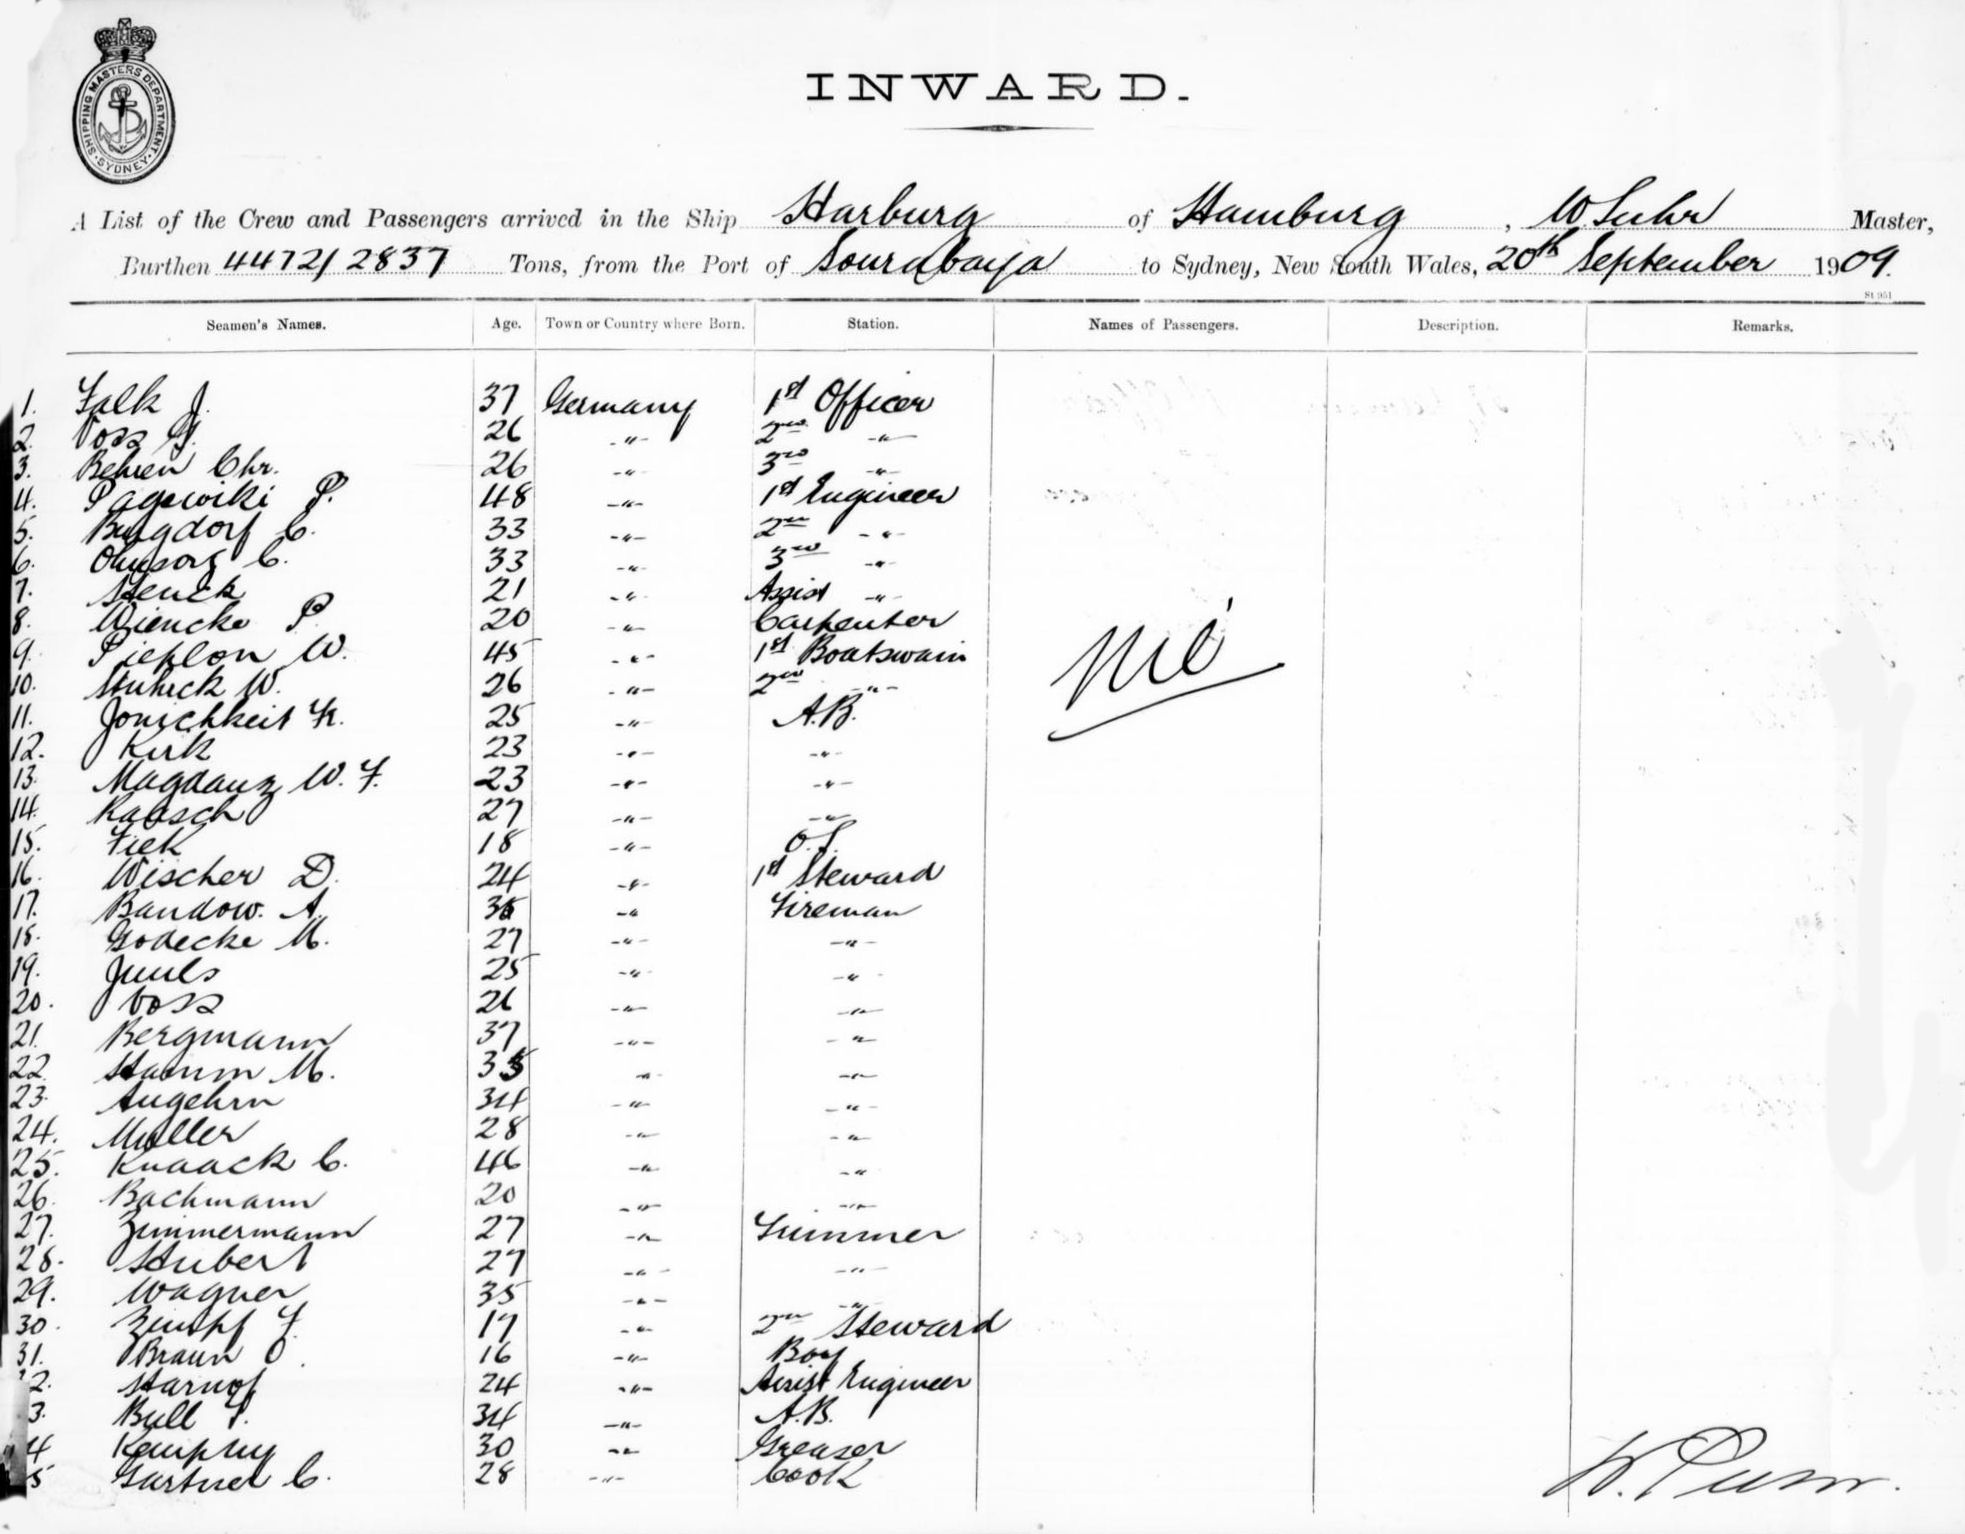 SHIPPING MASTERS DEPARTMENT
SYDNEY
INWARD.
A List of the Crew and Passengers arrived in the Ship Harburg of Hamburg, W. Suhr Master,
Burthen 4472/2837 Tons, from the Port of Sourabaya to Sydney, New South Wales, 20th September 1909.
St 951
Seamen's Names. Age. Town or Country where Born. Station. Names of Passengers. Description. Remarks.
1. Falk J. 37 Germany 1st Officer
2. Voss G. 26 -"- 2nd -"-
3. Behren Chr. 26 -"- 3rd -"-
4. Pagowiki P. 48 -"- 1st Engineer
5. Bugdorf C. 33 -"- 2nd -"-
6. Ohnsorg C. 33 -"- 3rd -"-
7. Henck 21 -"- Assist -"-
8. Wiencke P. 20 -"- Carpenter
9. Pieplon W. 45 -"- 1st Boatswain
10. W. 26 -"- 2nd -"-
11. Jonischkeit Fr. 25 -"- A.B.
12. Kirk 23 -"- -"-
13. Magdanz W. F. 23 -"- -"-
14. Raasch 27 -"- -"-
15. Fick 18 -"- O.S.
16. Wischer D. 24 -"- 1st Steward
17. Bandow. A. 36 -"- Fireman
18. Godecke M. 27 -"- -"-
19. Juuls 25 -"- -"-
20. Voss 26 -"- -"-
21. Bergmann 37 -"- -"-
22. Hamm M. 35 -"- -"-
23. Angehrn 34 -"- -"-
24. Muller 28 -"- -"-
25. Knaack C. 46 -"- -"-
26. Bachmann 20 -"- -"-
27. Zimmermann 27 -"- Trimmer
28. Hubert 27 -"- -"-
29. Wagner 35 -"- -"-
30. Zimpf F. 17 -"- 2nd Steward
31. Braun O. 16 -"- Boy
2. Harnof 24 -"- Assist Engineer
3. Bull 34 -"- A.B.
4 30 -"- Greaser
5 Gartner C. 28 -"- Cook
Nil